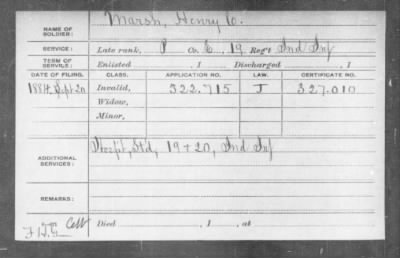 NAME OF SOLDIER: Marsh, Henry C.
SERVICE: Late rank, P Co. C, 19 Reg't Ind Inf
TERM OF SERVICE: Enlisted , 1 Discharged , 1
DATE OF FILING. CLASS. APPLICATION NO. LAW. CERTIFICATE NO.
1884, Sept 20 Invalid, 522.715 J 327.010
Widow,
Minor,
ADDITIONAL SERVICES: Hospt, Std, 19+20, Ind Inf
REMARKS:
Died , 1 , at